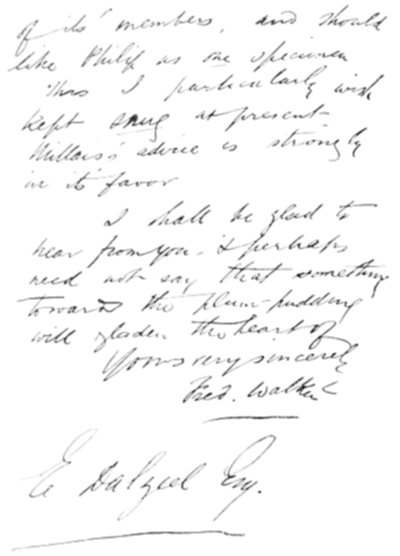 of its' members, and should
like Philip as one specimen
This I particularly wish
kept snug at present-
Millais's advice is strongly
in its favor
I shall be glad to
hear from you. & perhaps
need not say that something
towards the plum-pudding
will gladen the heart of
Yours very sincerely
Fred. Walker
E Dalziel Esq.